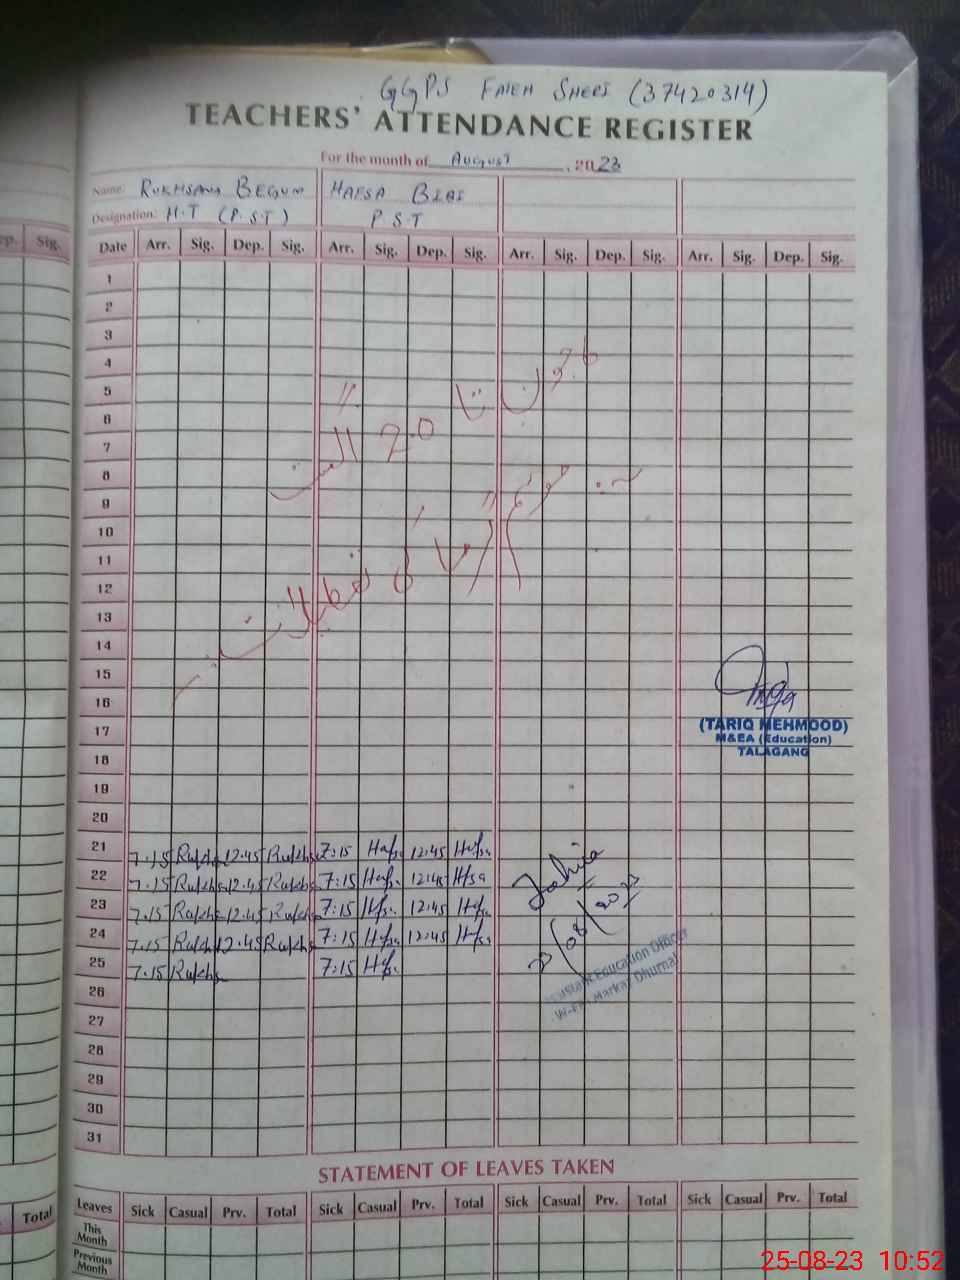 GGPS FATEH SHERI (37420314)
TEACHERS' ATTENDANCE REGISTER
For the month of August, 2023
Name: RUKHSANA BEGUM HAFSA BIBI
Designation: H.T (P.S.T) P.S.T
Date Arr. Sig. Dep. Sig. Arr. Sig. Dep. Sig. Arr. Sig. Dep. Sig. Arr. Sig. Dep. Sig.
ep. Sig.
1
2
3
4
5
6
7
8
9
10
11
12
13
14
15
16
17
18
19
20
6 جون تا 20 اگست
موسم گرما کی تعطیلات
(TARIQ MEHMOOD)
M&EA (Education)
TALAGANG
21 7.15 Rukhs 12.45 Rukhs 7:15 Hafs. 12:45 Hafs.
22 7.15 Rukhs 12.45 Rukhs 7:15 Hafs. 12:45 Hfsa
23 7.15 Rukhs 12.45 Rukhs 7:15 Hfs. 12:45 Hfs.
24 7.15 Rukhs 12.45 Rukhs 7:15 Hfs. 12:45 Hfs.
25 7.15 Rukhs 7:15 Hfs.
26
27
28
29
30
31
Education Officer
Markaz Dhurnal
STATEMENT OF LEAVES TAKEN
Leaves Sick Casual Prv. Total Sick Casual Prv. Total Sick Casual Prv. Total Sick Casual Prv. Total
Total
This Month
Previous Month
25-08-23 10:52